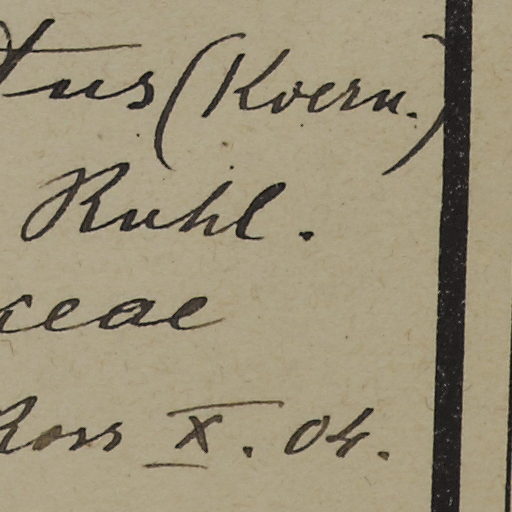 tus (Koern.)
Ruhl.
ceae
Ross X. 04.